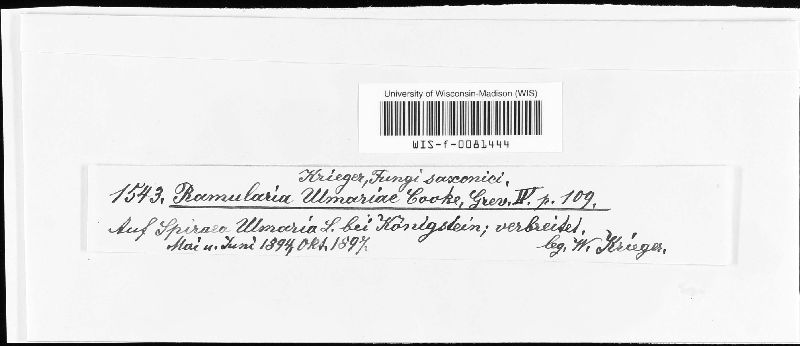 University of Wisconsin-Madison (WIS)
WIS-f-0081444
Krieger, Fungi saxonici.
1543. Ramularia Ulmariae Cooke, Grev. IV. p. 109.
Auf Spiraea Ulmaria L. bei Königstein; verbreitet.
Mai u. Juni 1894, Okt. 1897. lg. W. Krieger.